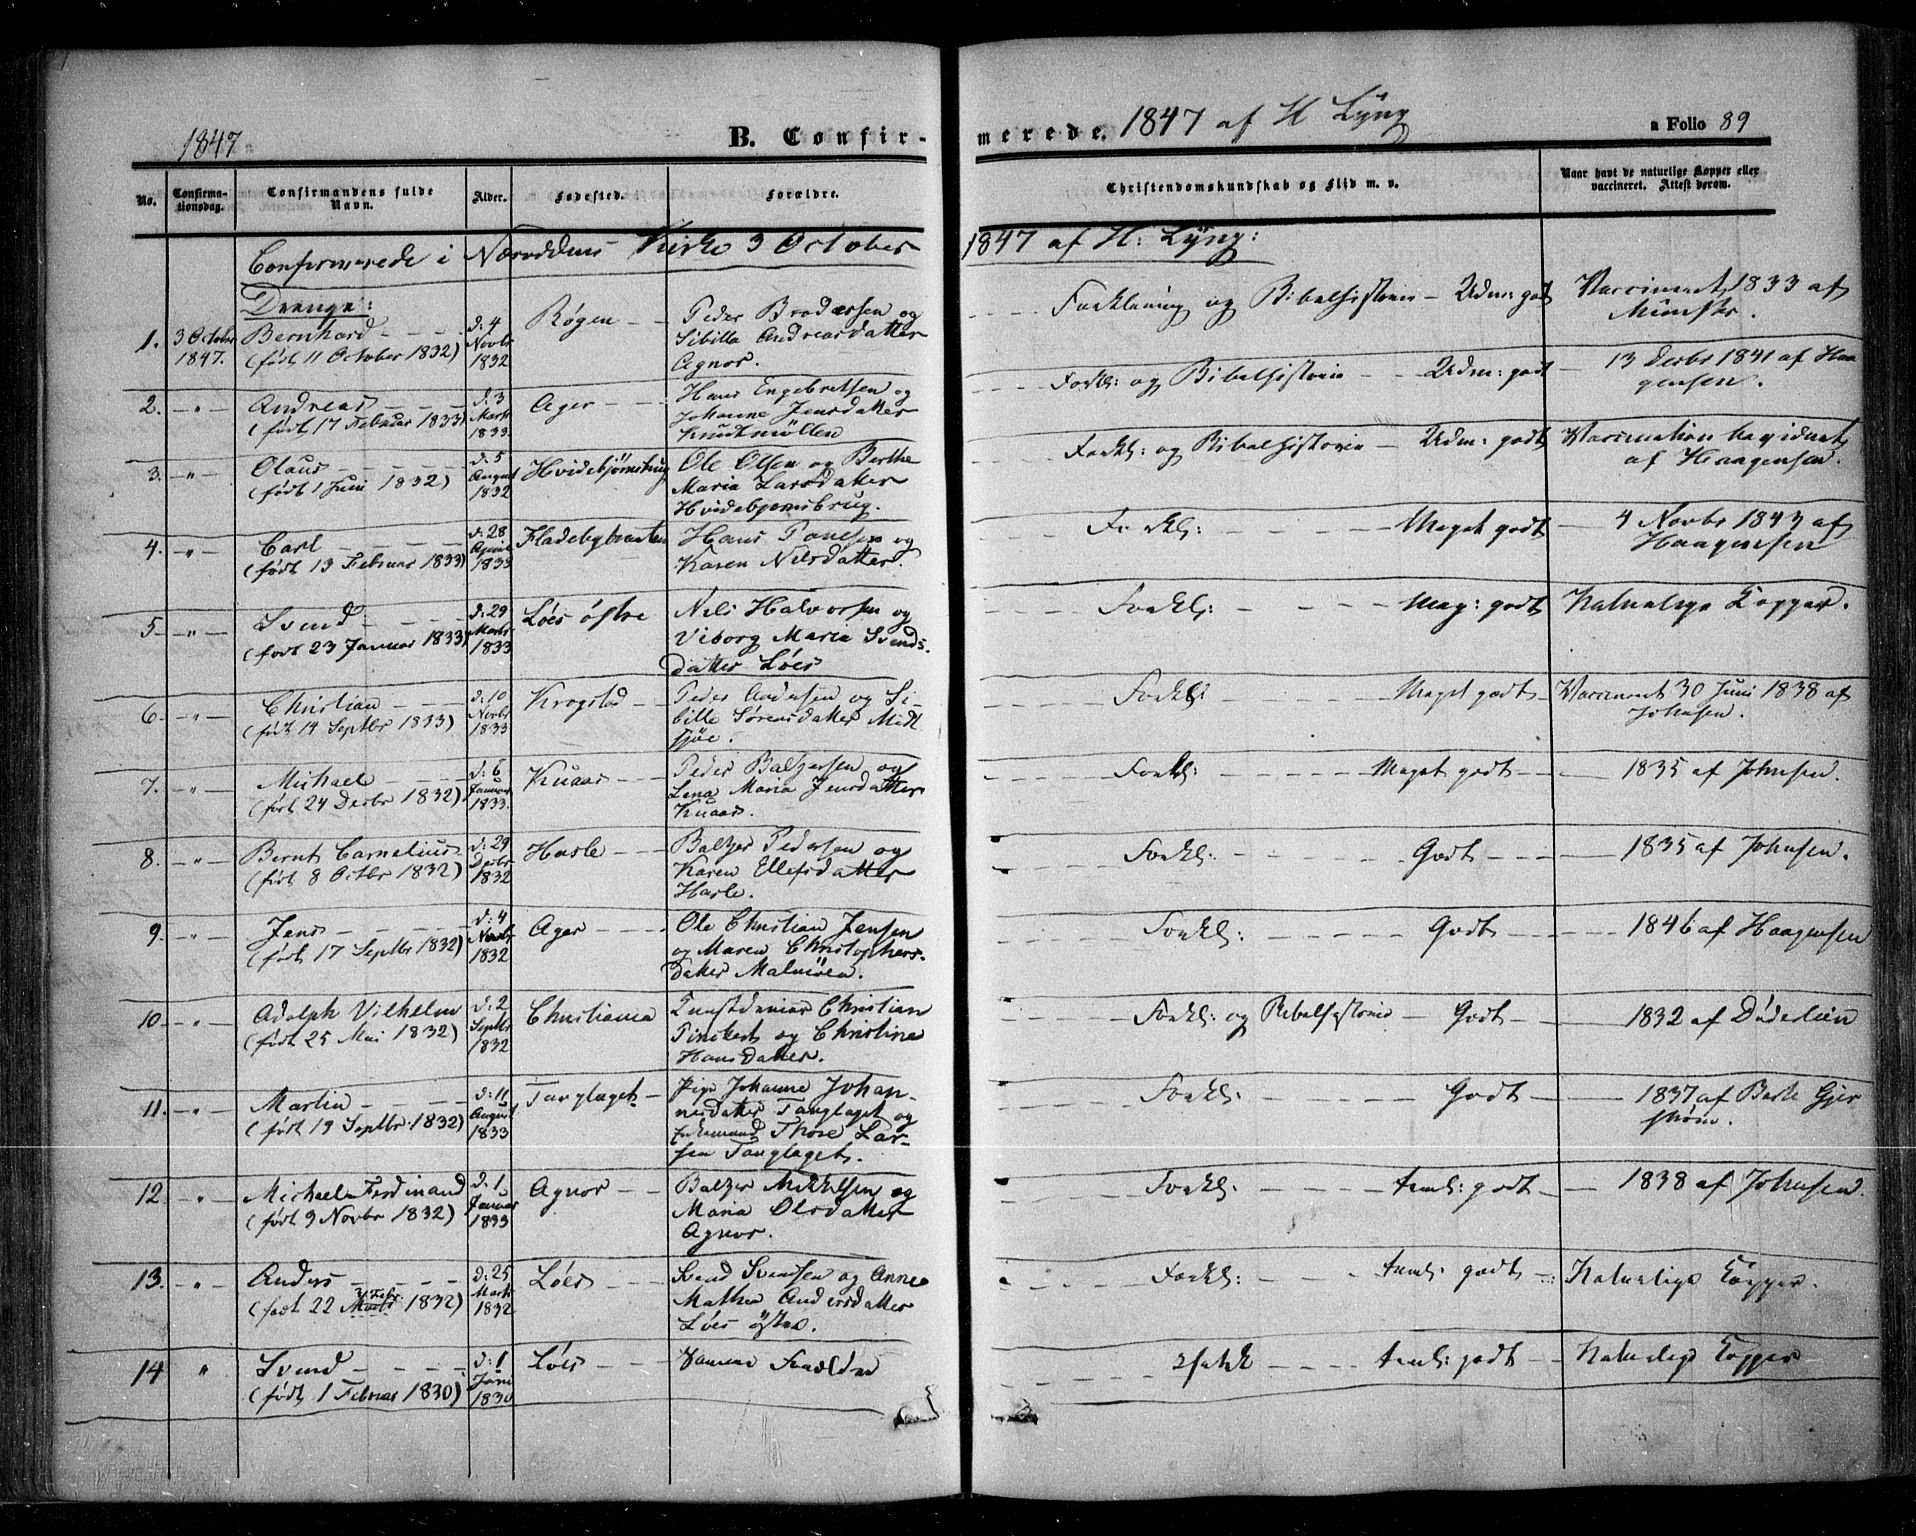 1847
B. Confir-
merede. 1847 af H Lyng
a Folio 89
No.
Confirma-
tionsdag.
Confirmandens fulde
Navn.
Alder.
Fødested.
Forældre.
Christendomskundskab og Flid m. v.
Naar havt de naturlige Kopper eller
vaccineret. Attest derom.
Confirmerede i Næsoddens Kirke 3 October
1847 af H: Lyng:
Drenge:
1. 3 October 1847. Bernhard - - - - d: 4 Røgen - - Peder Brodersen og - - - - Forklaring og Bibelhistorie - Udm: godt Vaccineret 1833 af
(født 11 October 1832) Novbr 1832 Sibilla Andreasdatter Münster.
Agnor.
2. -"- Andreas - - - - d: 3 Ager - - - Hans Engebretsen og - - - Forkl: og Bibelhistorie - - - Udm: godt - 13 Decbr 1841 af Haa
(født 17 Februar 1833) Marts 1833. Johanne Jensdatter gensen.
Knudsmøllen
3. -"- Olaus - - - - d: 5 Hvidebjørnsbrug Ole Olsen og Berthe - - - Forkl: og Bibelhistorie - - Udm: godt Vaccination bevidnet
(født 1 Juni 1832) August 1832 Maria Larsdatter af Haagensen.
Hvidebjørnsbrug.
4. -"- Carl - - - - d: 28 Fladebybraaten Hans Tonesen og - - - Forkl: - - - - Meget godt - 4 Novbr 1843 af
(født 13 Februar 1833) April 1833 Karen Nilsdatter. Haagensen
5. -"- Svend - - - - d: 29 Løes østre Nils Halvorsen og - - - Forkl: - - - - Meg: godt Naturlige Kopper.
(født 23 Januar 1833) Marts 1833 Viborg Maria Svends-
datter Løes
6. -"- Christian - - - d: 10 Krogstad - Peder Andersen og Si- - - - Forkl: - - - - Meget godt - Vaccineret 30 Juni 1838 af
(født 14 Septbr 1833) Novbr 1833 bille Sørensdatter Midt Johnsen.
sjøe.
7. -"- Michael - - - - d: 6 Knaar - - Peder Baltzersen og - - - Forkl: - - - - Meget godt - - 1835 af Johnsen.
(født 24 Decbr 1832) Januar 1833. Lena Maria Jensdatter
Knaar.
8. -"- Bernt Cornelius d: 29 Hasle - - Baltzer Pedersen og - - - Forkl: - - - - Godt - - - 1835 af Johnsen.
(født 8 Octbr 1832) Decbr 1832 Karen Ellefsdatter
Hasle.
9. -"- Jens - - - - d: 4 Ager - - - Ole Christian Jensen - - - Forkl: - - - - Godt - - 1846 af Haagensen
(født 17 Septbr 1832) Novbr 1832 og Maren Christophers-
datter Malmøen.
10 -"- Adolph Vilhelm d: 2 Christiania Kunstdreier Christian - - - Forkl: og Bibelhistorie - Godt - - 1832 af Døderlein
(født 25 Mai 1832) Septbr 1832 Pinckert og Christine
Hansdatter.
11. -"- Martin - - - - d: 11 Tanglaget - Pige Johanne Johan- - - - Forkl: - - - - Godt - - 1837 af Berte Gjer
(født 19 Septbr 1832) August 1833 nesdatter Tanglaget og strøm.
Enkemand Thore Lar-
sen Tanglaget.
12 " Michael Ferdinand d: 1 Agnor - - Baltzer Mikkelsen og - - - Forkl: - - - - Teml: godt - - 1838 af Johnsen.
(født 9 Novbr 1832) Januar 1833 Maria Olsdatter
Agnor.
13. " Anders - - - - d: 25 Løes - - Svend Svendsen og Anne - - - Forkl: - - - - Teml: godt - Naturlige Kopper.
(født 22 Febr: Marts 1832) Marts 1832 Mathea Andersdatter
Løes østre.
14 " Svend - - - - d: 1 Løes - - Samme Forældre - - - - - - Teml: godt - Naturlige Kopper
(født 1 Februar 1830) Juni 1830